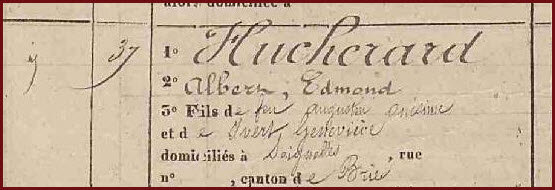 alors domiciliée à
37 1º Hucherard
2º Albert, Edmond
3º Fils de feu Augustin
et de Geneviève
domiciliés à Soignolles, rue
nº , canton de Brie